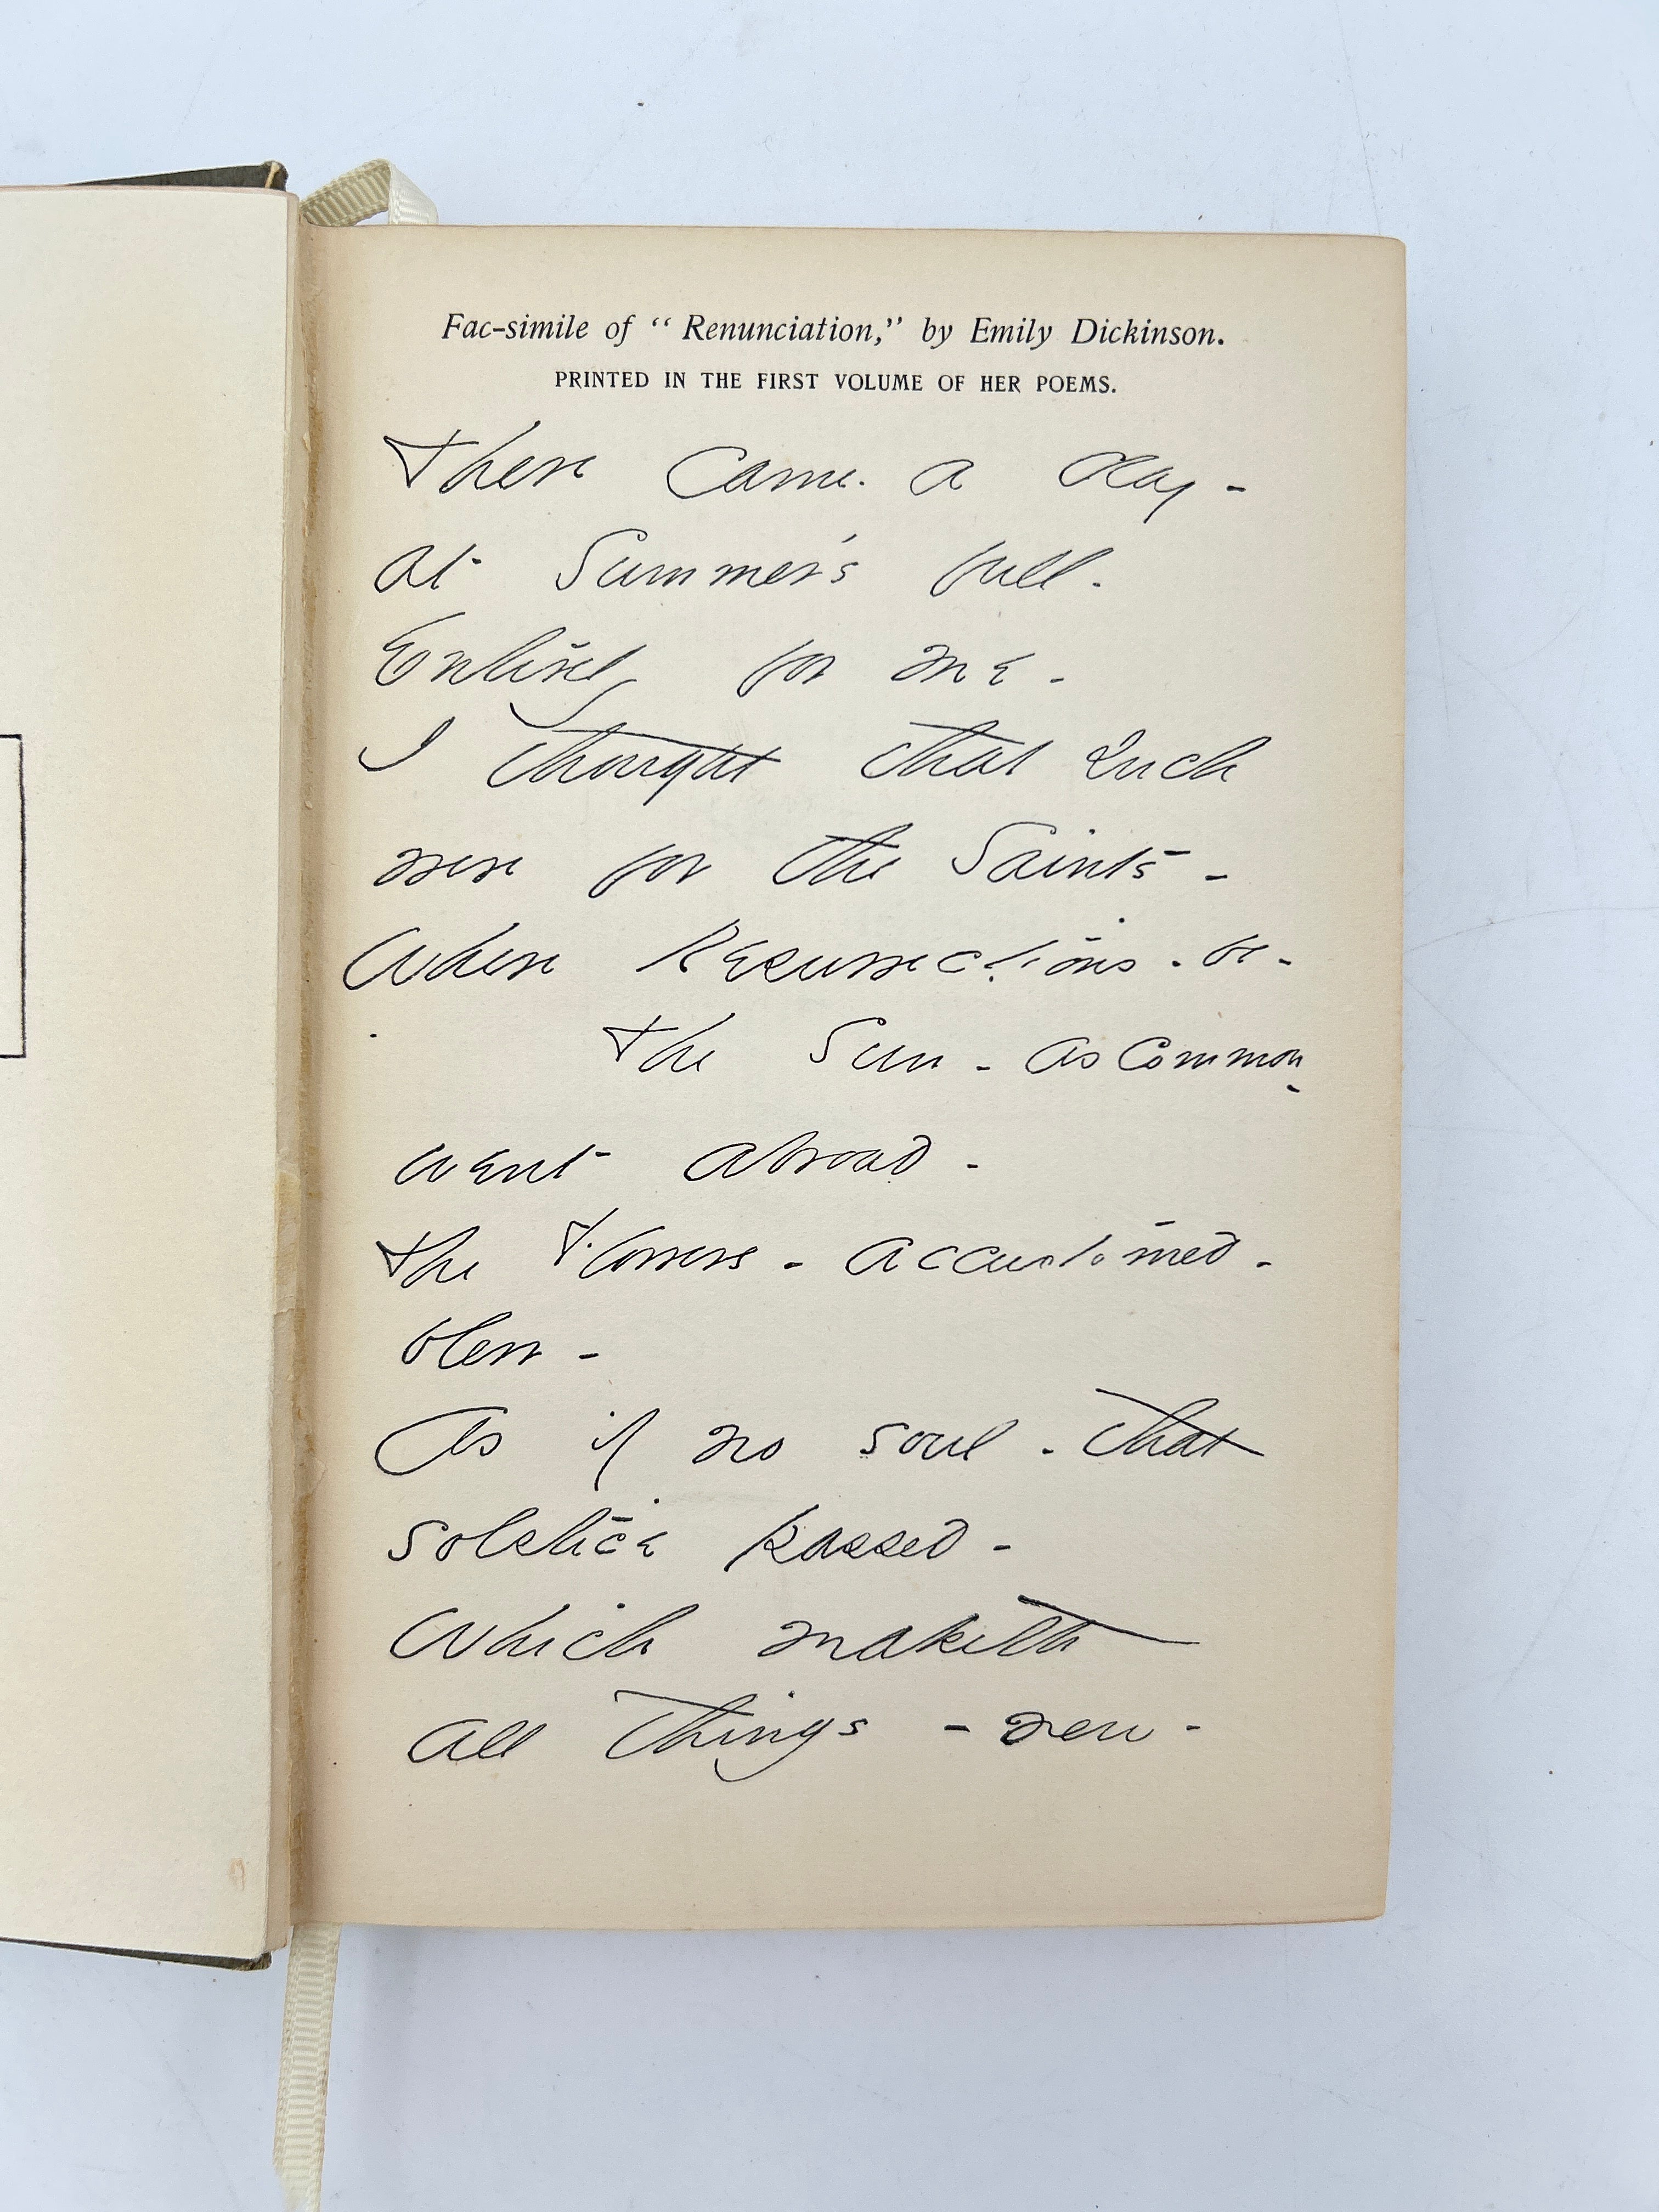 Fac-simile of “ Renunciation,” by Emily Dickinson.
PRINTED IN THE FIRST VOLUME OF HER POEMS.
There came - a day -
at Summer's full -
Entirely for me -
I thought that such
were for the Saints -
Where Resurrections - be -
The Sun - as common -
went abroad -
The flowers - accustomed -
blew -
As if no soul - that
solstice passed -
Which maketh
all things - new -